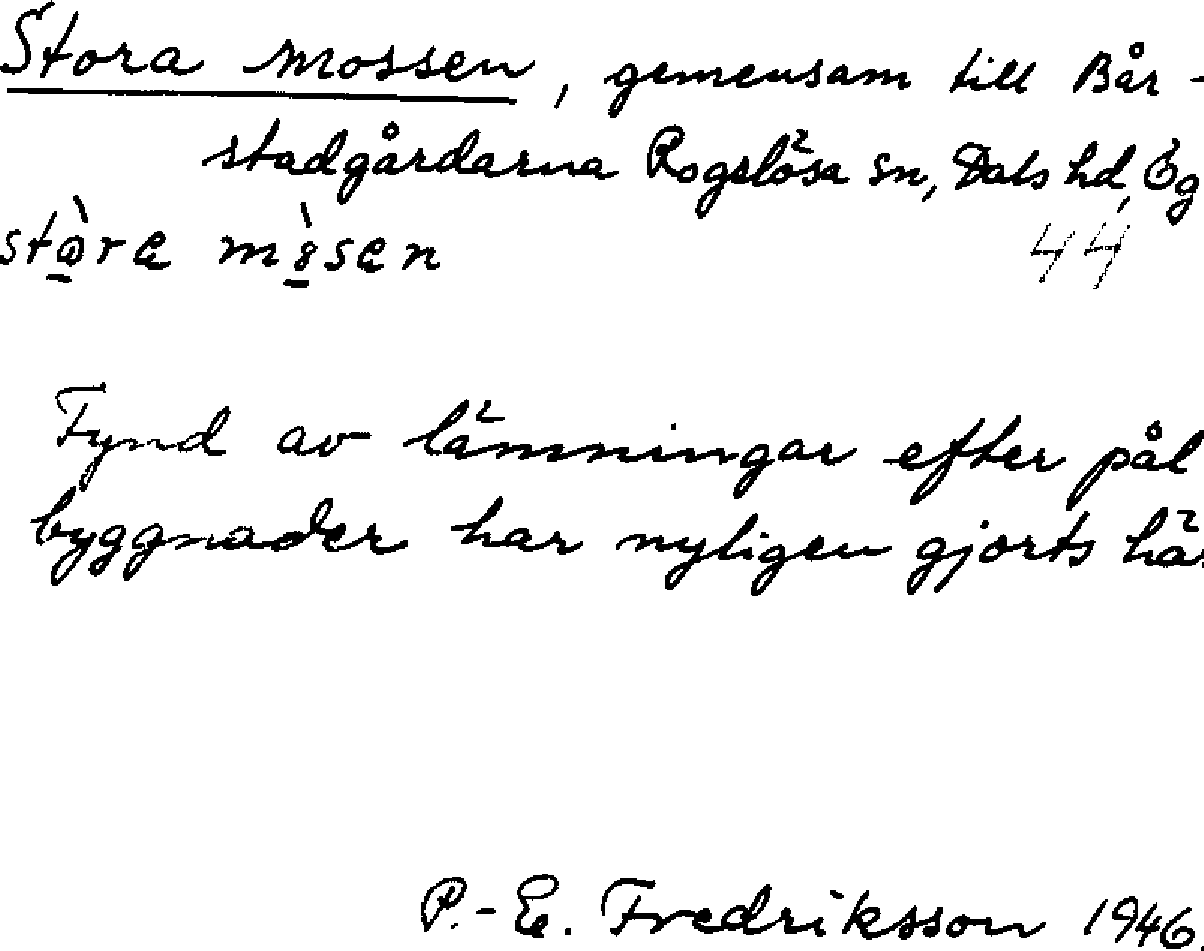 Stora Mossen, gemensam till Bår-
stadgårdarna Rogslösa sn, Dals hd, Ög
44
Fynd av lämningar efter pål
byggnader har nyligen gjorts här
P.-E. Fredriksson 1946.